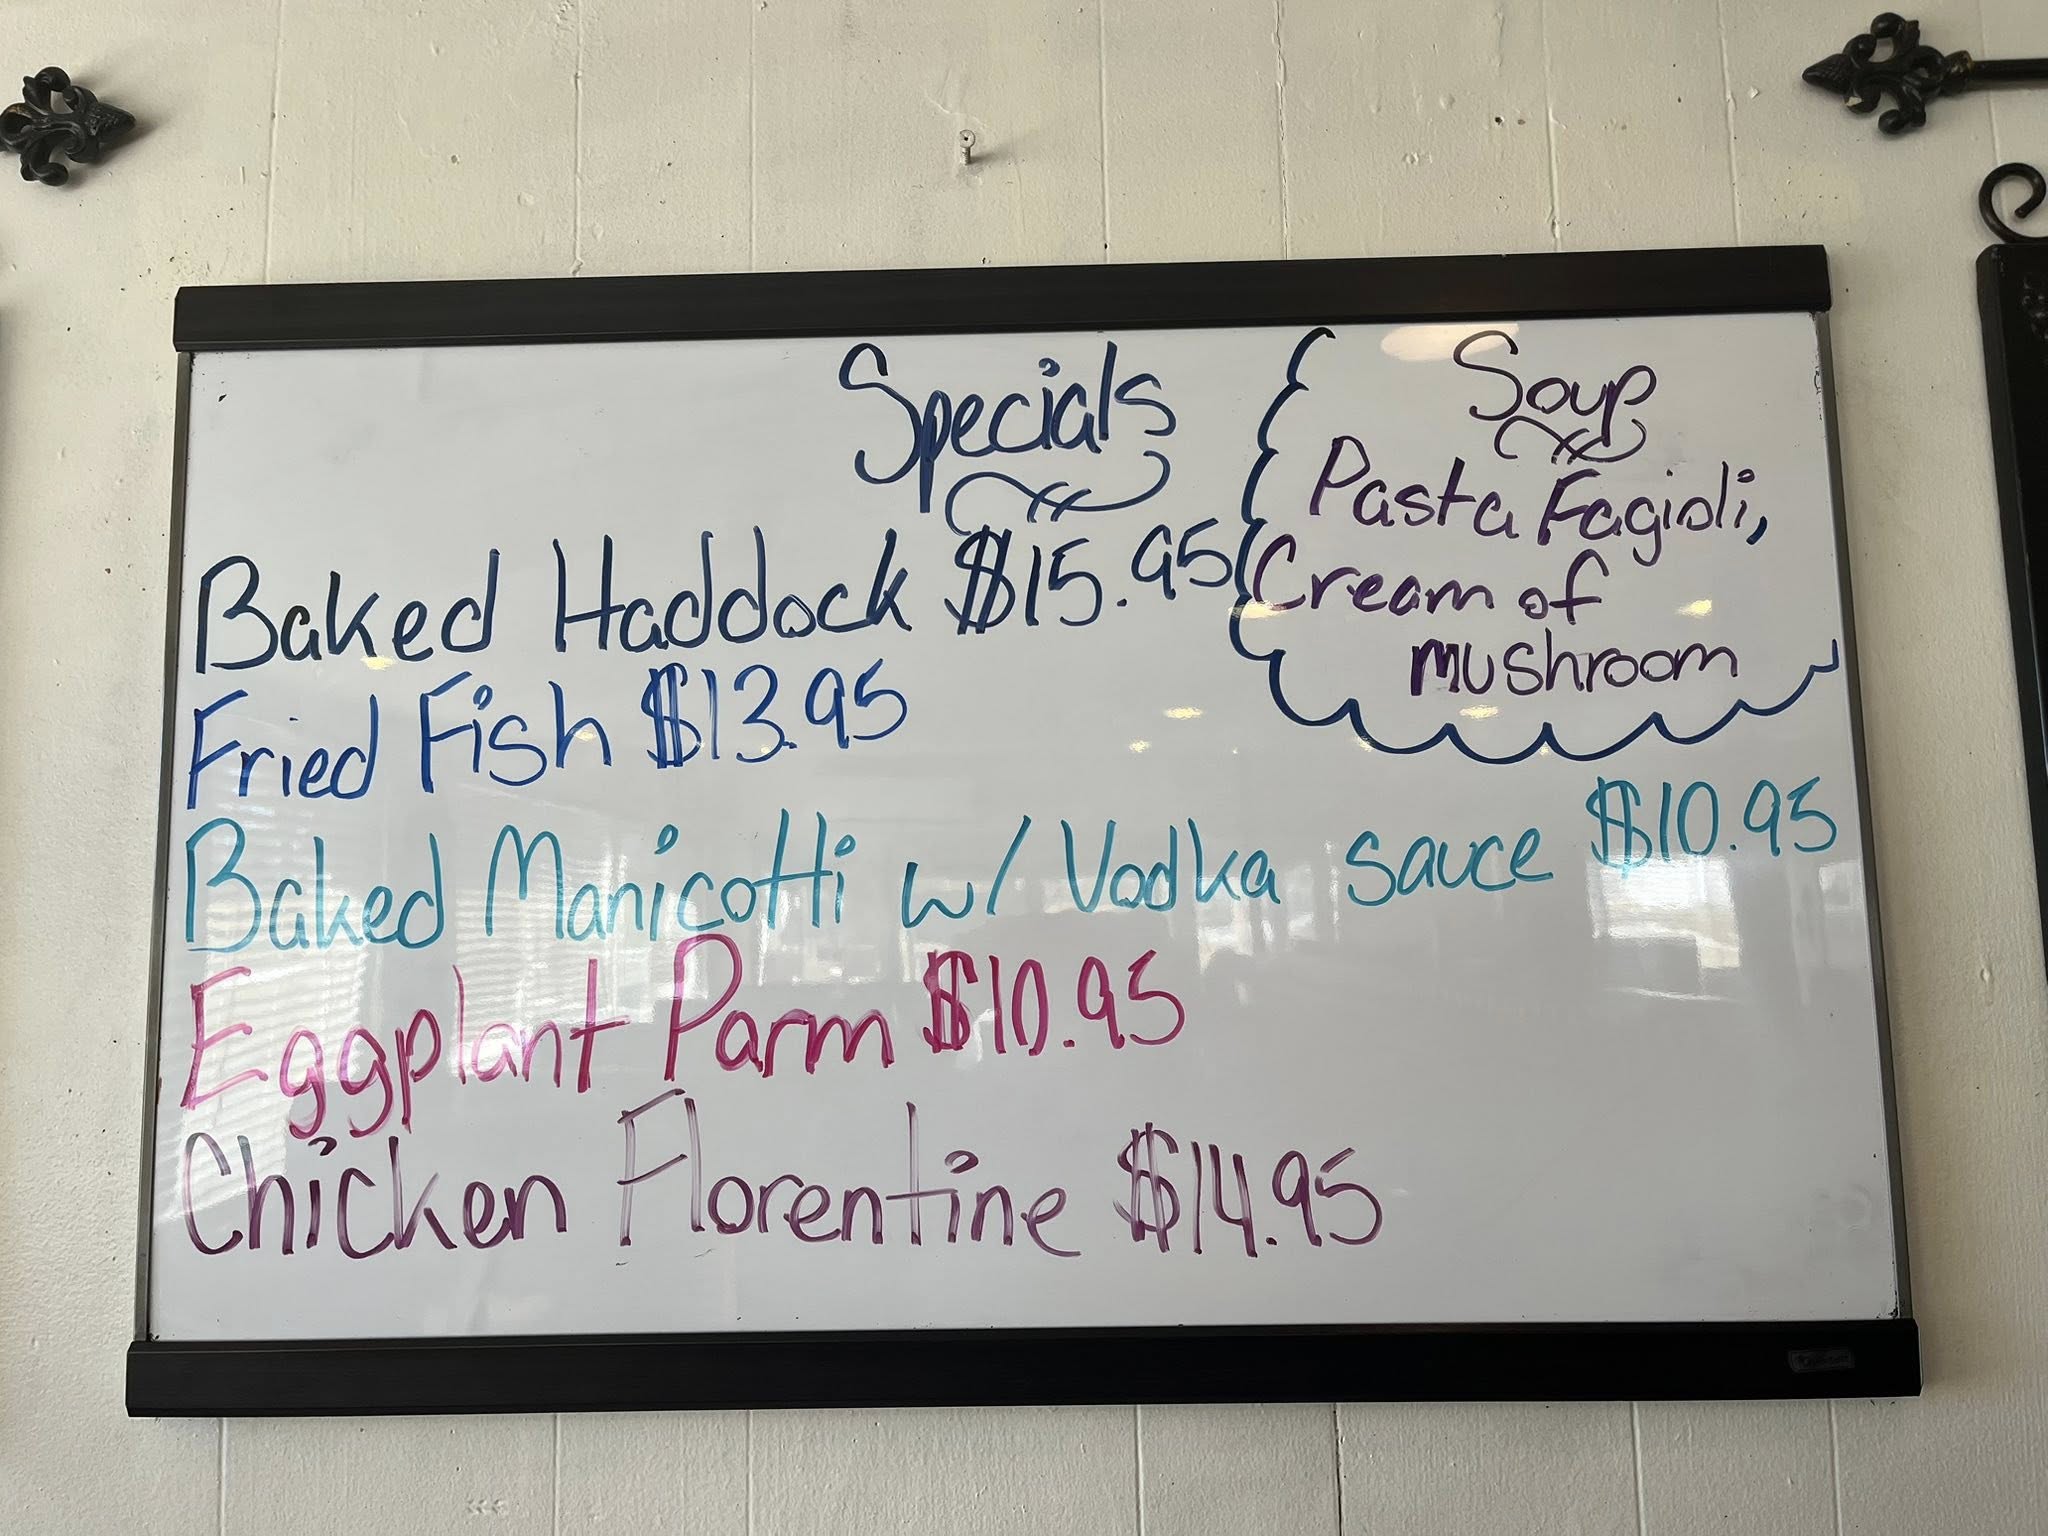 Specials
Baked Haddock $15.95
Fried Fish $13.95
Baked Manicotti w/ Vodka sauce $10.95
Eggplant Parm $10.95
Chicken Florentine $14.95
Soup
Pasta Fagioli,
Cream of
mushroom